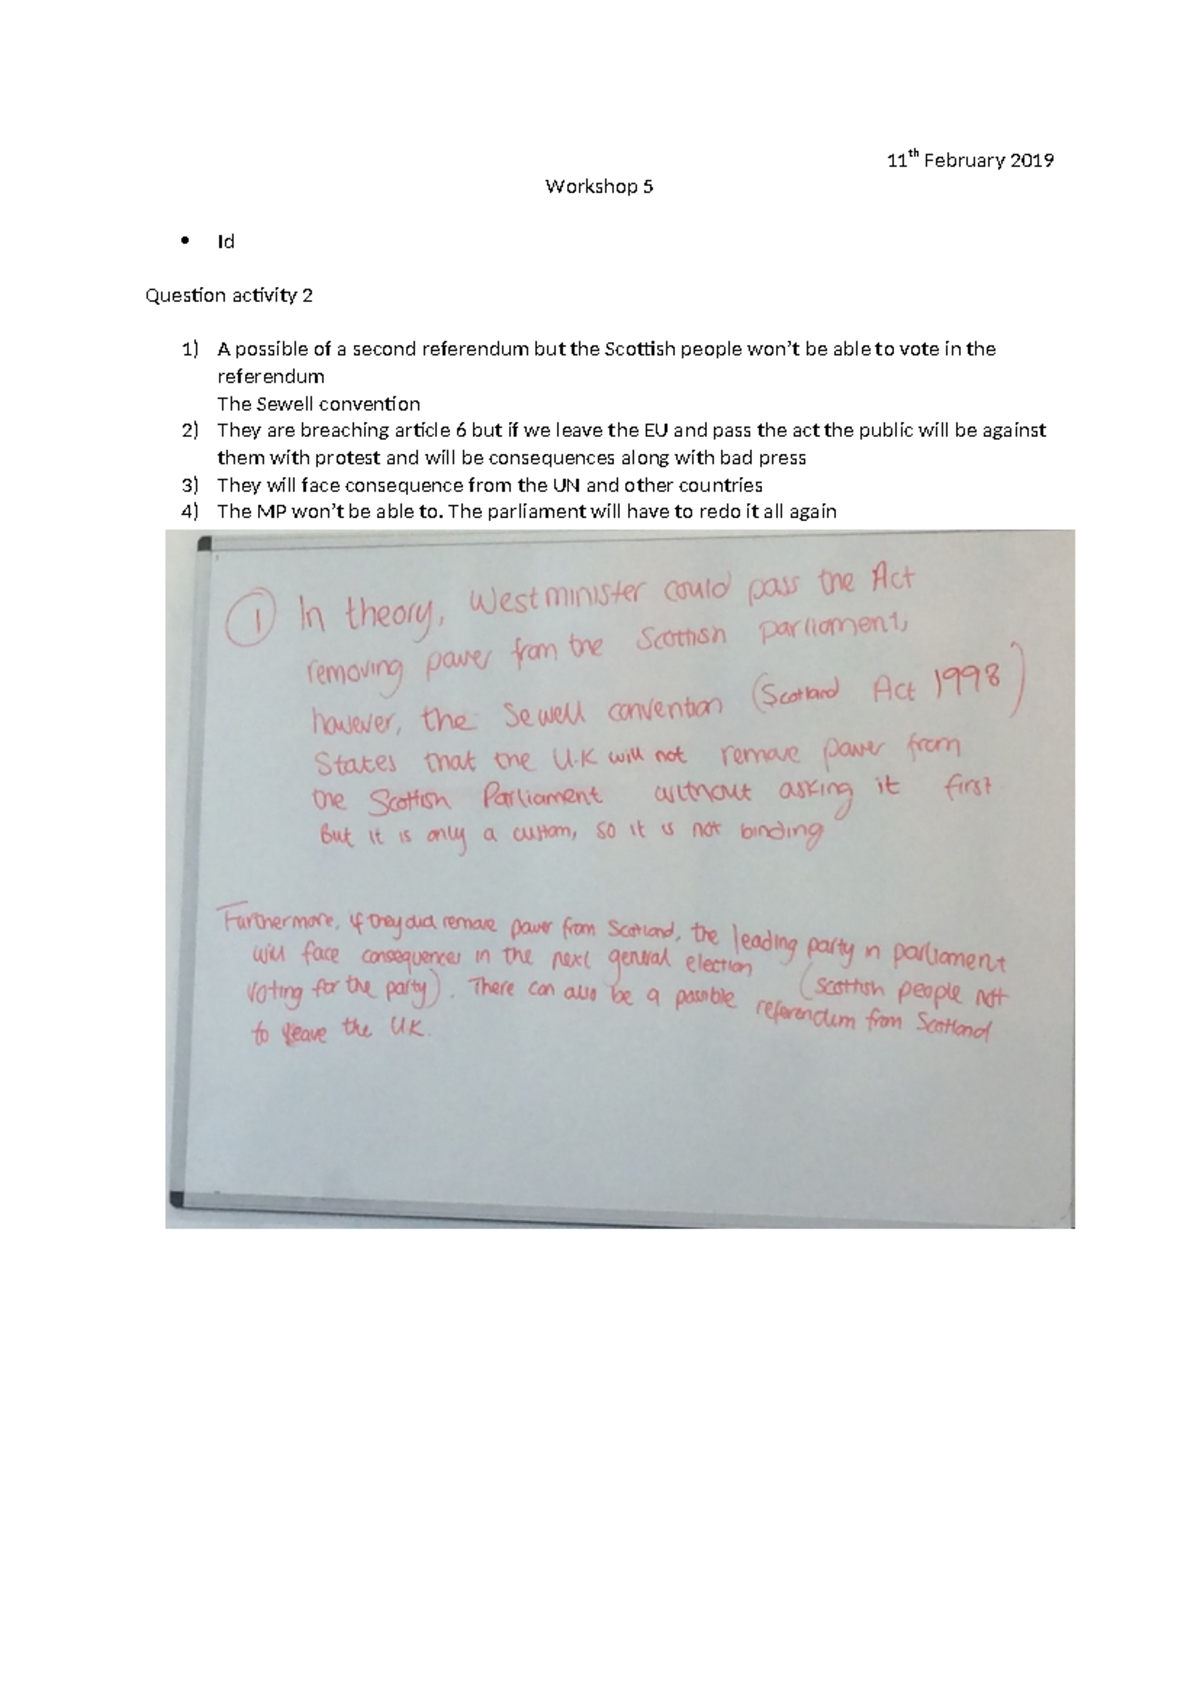 11th February 2019
Workshop 5
• Id
Question activity 2
1) A possible of a second referendum but the Scottish people won't be able to vote in the
referendum
The Sewell convention
2) They are breaching article 6 but if we leave the EU and pass the act the public will be against
them with protest and will be consequences along with bad press
3) They will face consequence from the UN and other countries
4) The MP won't be able to. The parliament will have to redo it all again
1 In theory, Westminister could pass the Act
removing power from the Scottish parliament,
however, the Sewell convention (Scotland Act 1998)
States that the U.K will not remove power from
the Scottish Parliament without asking it first
But it is only a custom, so it is not binding
Furthermore, if they did remove power from Scotland, the leading party in parliament
will face consequences in the next general election (Scottish people not
voting for the party). There can also be a possible referendum from Scotland
to leave the UK.